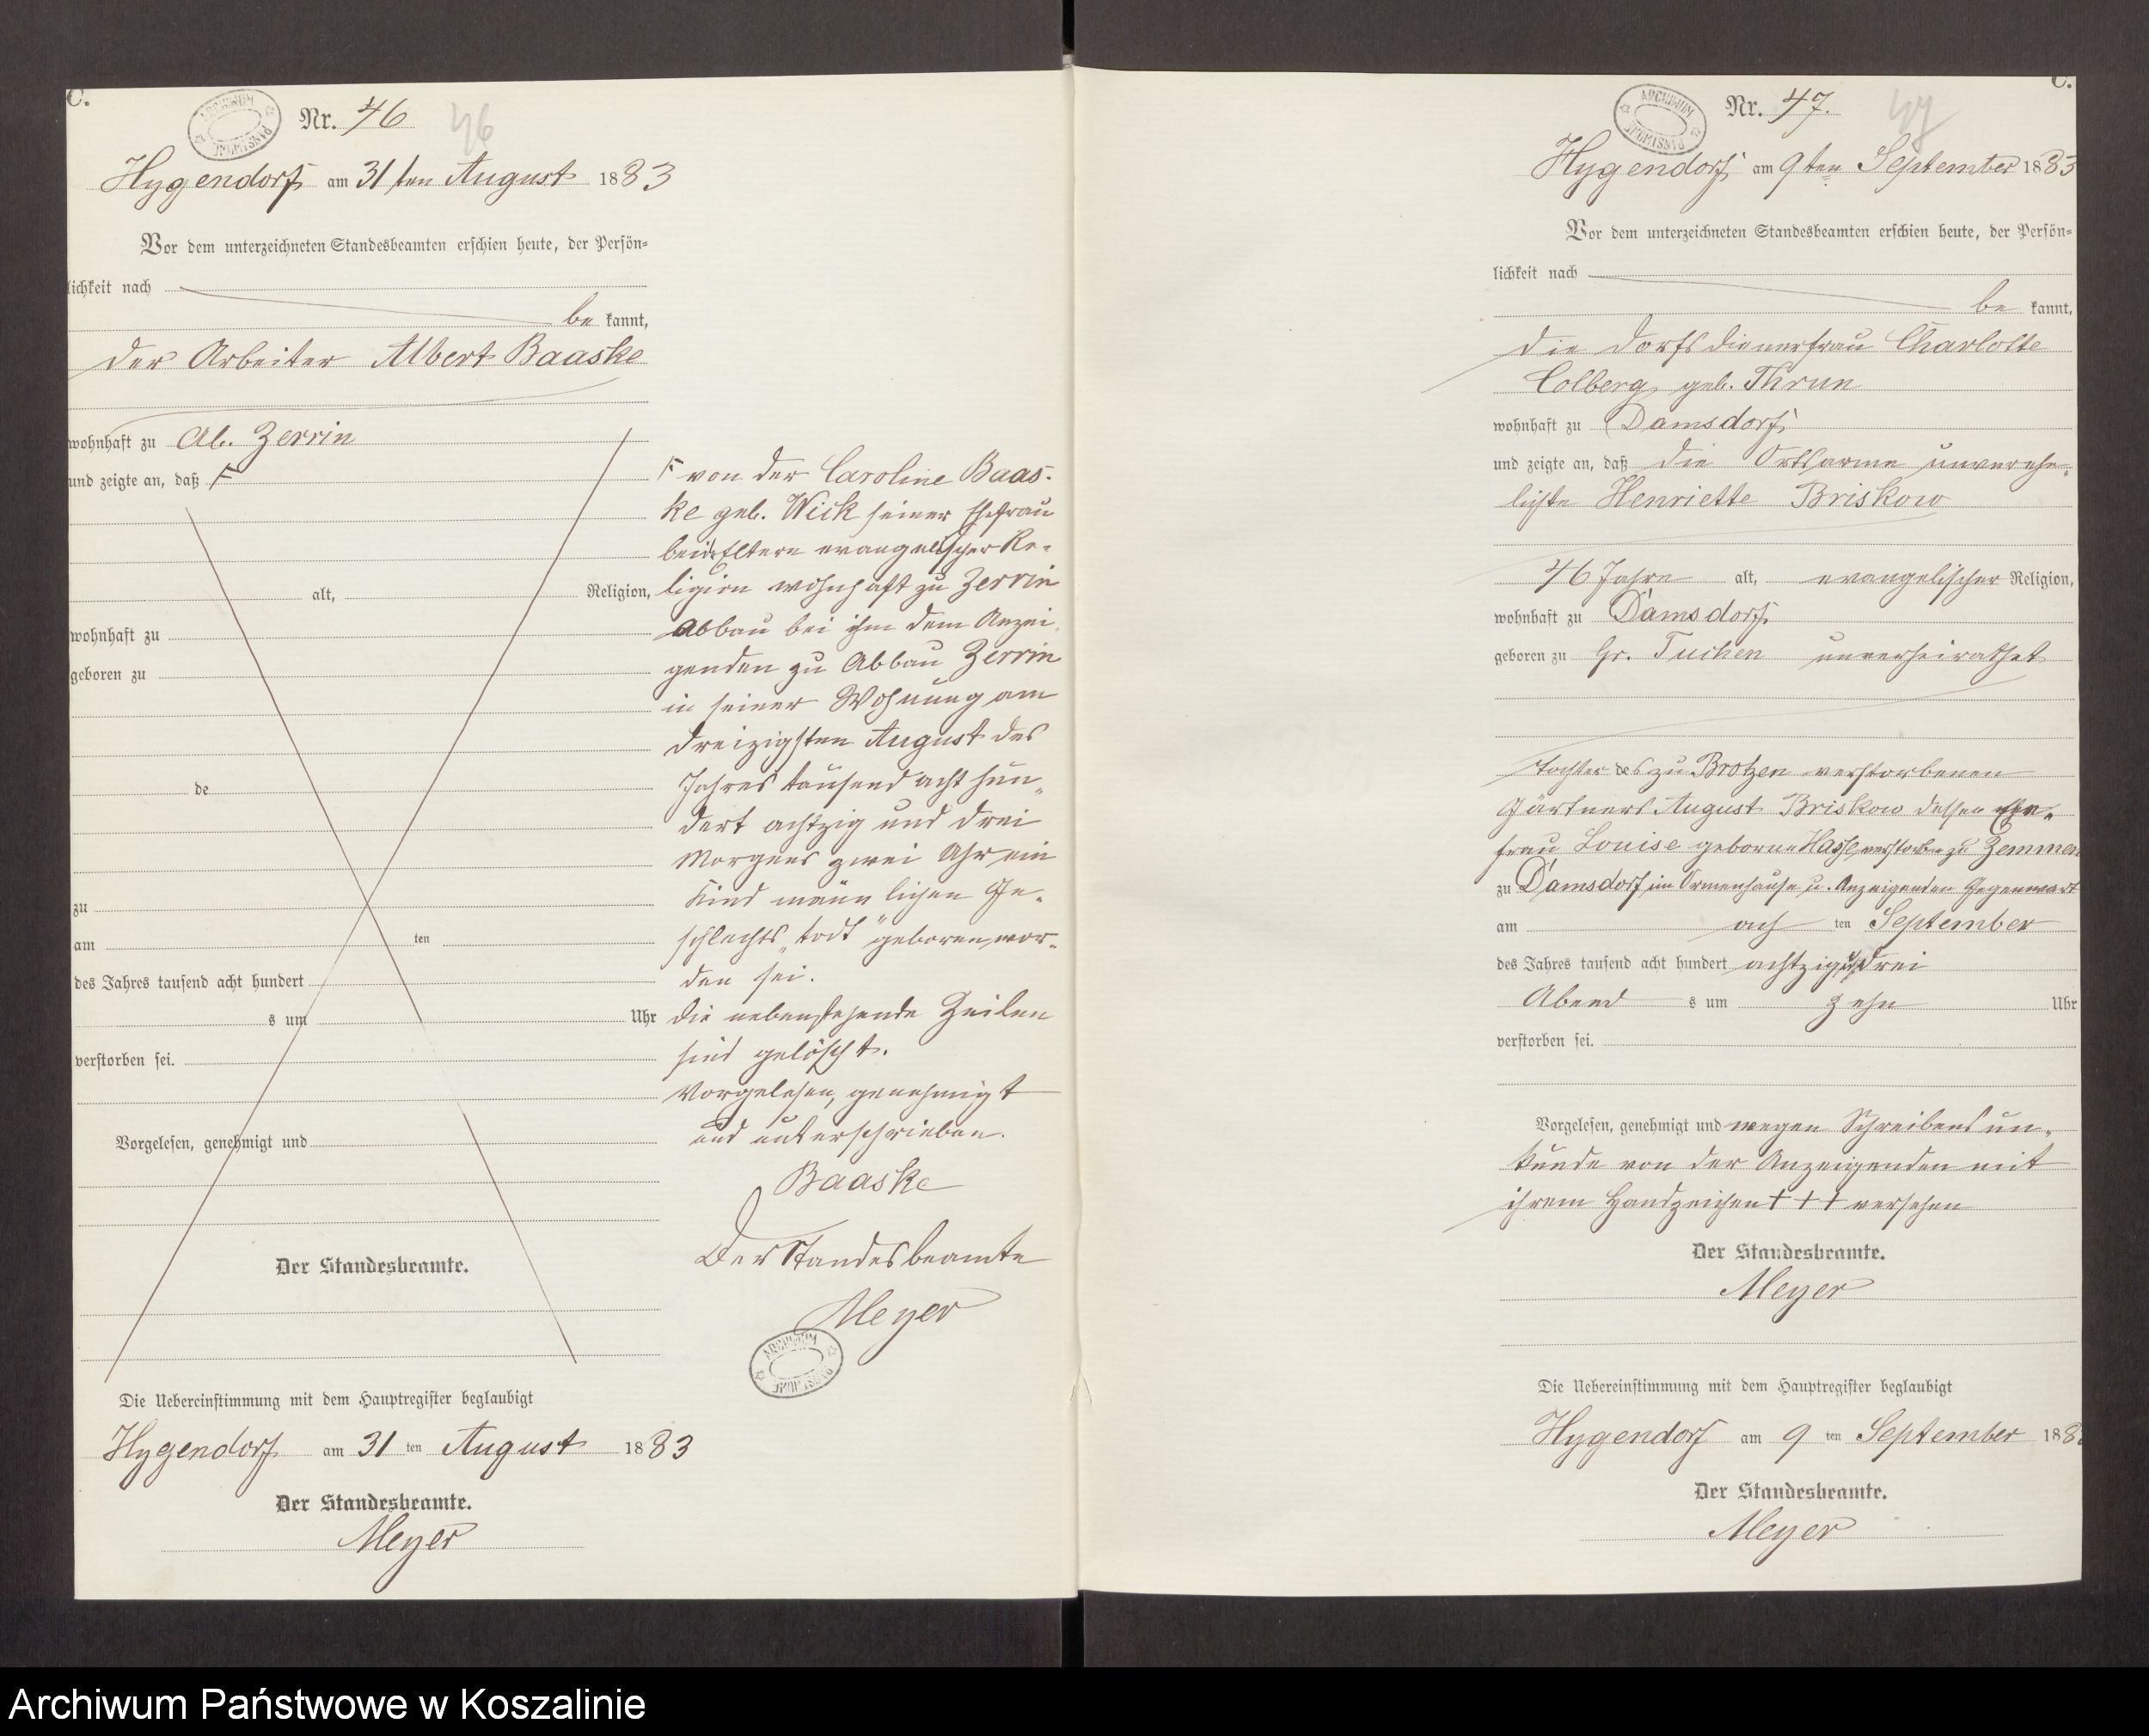 C.
Nr. 46
46
Hygendorf am 31ten August 1883
Vor dem unterzeichneten Standesbeamten erschien heute, der Persön-
lichkeit nach
be kannt,
der Arbeiter Albert Baaske
wohnhaft zu Ab. Zerrin
und zeigte an, daß
alt, Religion,
wohnhaft zu
geboren zu
de
zu
am ten
des Jahres tausend acht hundert
s um Uhr
verstorben sei.
Vorgelesen, genehmigt und
Der Standesbeamte.
von der Caroline Baas-
ke geb. Wick seiner Ehefrau
beide Eltern evangelischer Re-
ligion wohnhaft zu Zerrin
Abbau bei ihm dem Anzei
genden zu Abbau Zerrin
in seiner Wohnung am
dreizigsten August des
Jahres tausend acht hun-
dert achtzig und drei
Morgens zwei Uhr ein
Kind männlichen Ge-
schlechts „todt" geboren wor-
den sei.
Die nebenstehende Zeilen
sind gelöscht.
Vorgelesen, genehmigt
und unterschrieben.
Baaske
Der Standesbeamte
Meyer
ARCHIWUM PAŃSTWOWE
Die Uebereinstimmung mit dem Hauptregister beglaubigt
Hygendorf am 31 ten August 1883
Der Standesbeamte.
Meyer
C.
ARCHIWUM PAŃSTWOWE
Nr. 47.
47
Hygendorf am 9ten September 1883
Vor dem unterzeichneten Standesbeamten erschien heute, der Persön-
lichkeit nach
be kannt,
die Dorfsdienerfrau Charlotte
Colberg geb. Thrun
wohnhaft zu Damsdorf
und zeigte an, daß die Ortsarme unverehe-
lichte Henriette Briskow
46 Jahre alt, evangelischer Religion,
wohnhaft zu Damsdorf
geboren zu Gr. Tuchen unverheirathet
Tochter des zu Brotzen verstorbenen
Gärtners August Briskow dessen Ehe-
frau Louise geborne Hasse verstorben zu Zemmen
zu Damsdorf im Armenhause u. Anzeigenden Gegenwart
am ach ten September
des Jahres tausend acht hundert achtzig und drei
Abend s um zehn Uhr
verstorben sei.
Vorgelesen, genehmigt und wegen Schreibens un-
kunde von der Anzeigenden mit
ihrem Handzeichen +++ versehen
Der Standesbeamte.
Meyer
Die Uebereinstimmung mit dem Hauptregister beglaubigt
Hygendorf am 9 ten September 188
Der Standesbeamte.
Meyer
Archiwum Państwowe w Koszalinie